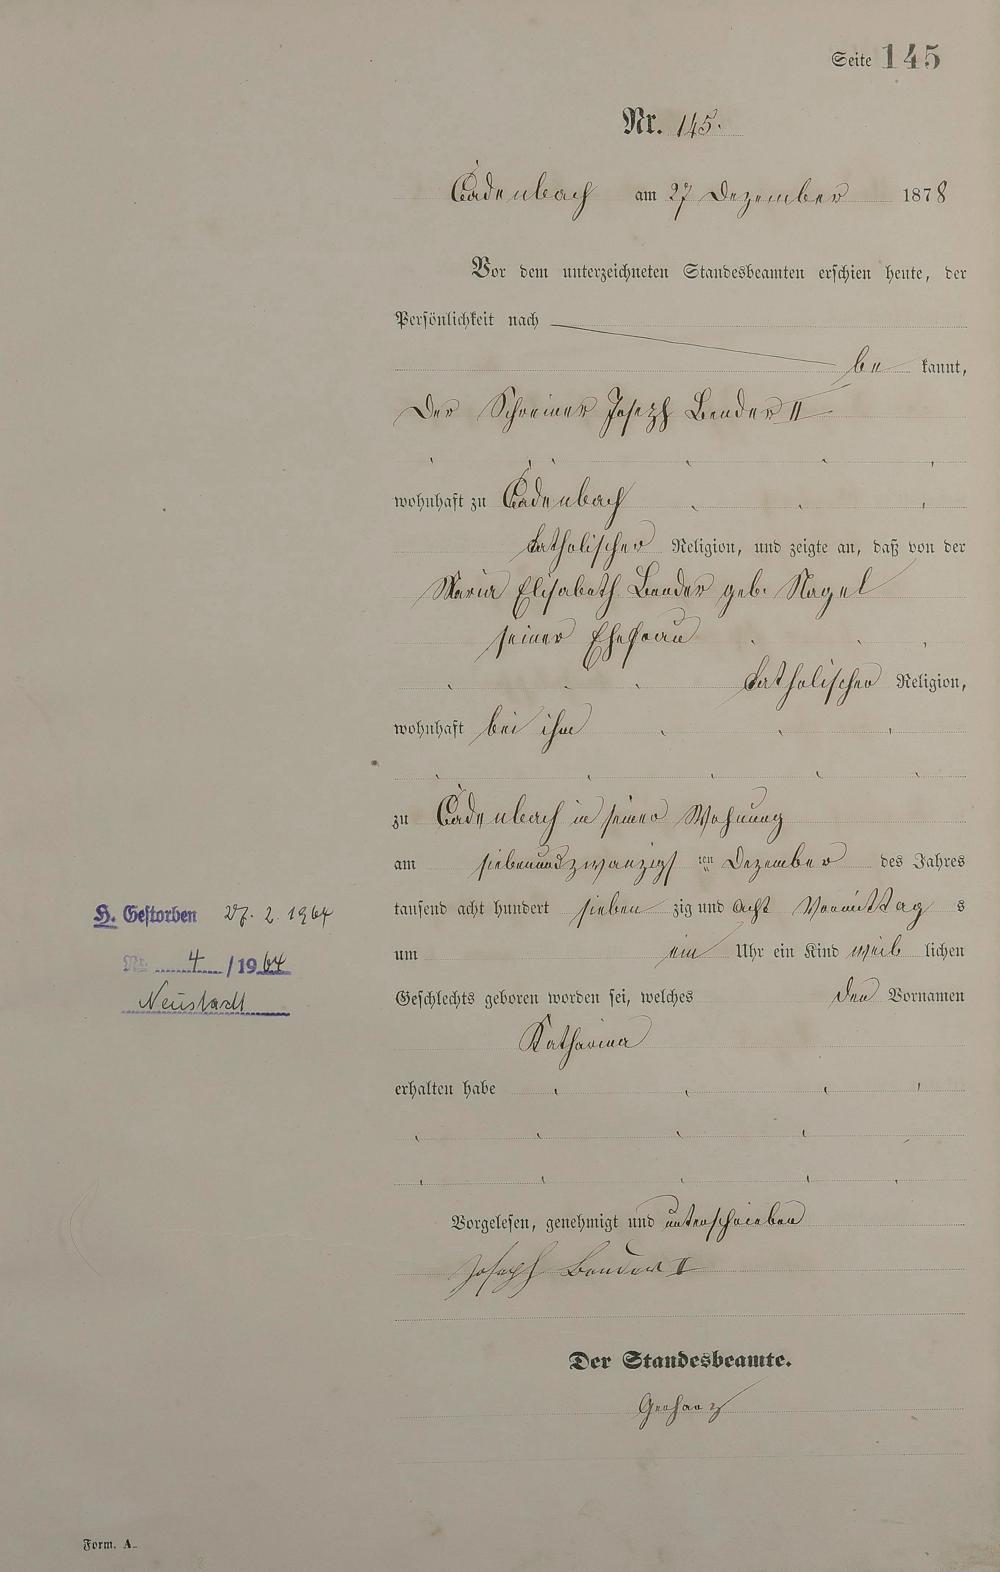 Seite 145
Nr. 145.
Cadenbach am 27 Dezember 1878
Vor dem unterzeichneten Standesbeamten erschien heute, der
Persönlichkeit nach
be kannt,
der Schreiner Joseph Bender II
wohnhaft zu Cadenbach
katholischer Religion, und zeigte an, daß von der
Maria Elisabeth Bender geb. Nagel
seiner Ehefrau
katholischer Religion,
wohnhaft bei ihm
zu Cadenbach in seiner Wohnung
am siebenundzwanzigs ten Dezember des Jahres
tausend acht hundert sieben zig und acht Vormittag s
um ein Uhr ein Kind weib lichen
Geschlechts geboren worden sei, welches den Vornamen
Katharina
erhalten habe
Vorgelesen, genehmigt und unterschrieben
Joseph Bender II
Der Standesbeamte.
Gerharz
H. Gestorben 27. 2. 1964
Nr. 4 / 1964
Neustadt
Form. A.